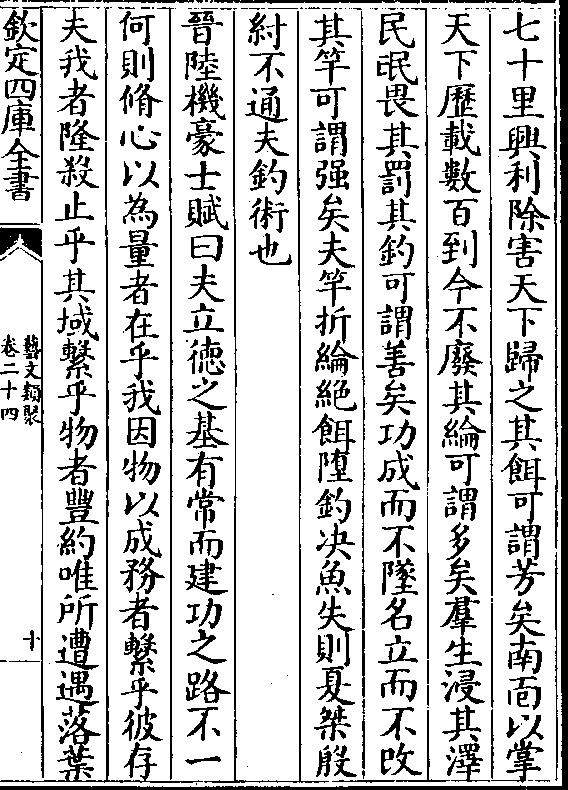 七十里興利除害天下歸之其餌可謂芳矣南面以掌
天下歷載數百到今不廢其綸可謂多矣羣生浸其澤
民氓畏其罰其釣可謂善矣功成而不墜名立而不改
其竿可謂强矣夫竿折綸絶餌墮釣決魚失則夏桀殷
紂不通夫釣術也
晉陸機豪士賦曰夫立徳之基有常而建功之路不一
何則脩心以為量者在乎我因物以成務者繫乎彼存
夫我者隆殺止乎其域繫乎物者豐約唯所遭遇落葉
欽定四庫全書
藝文類聚
卷二十四
十